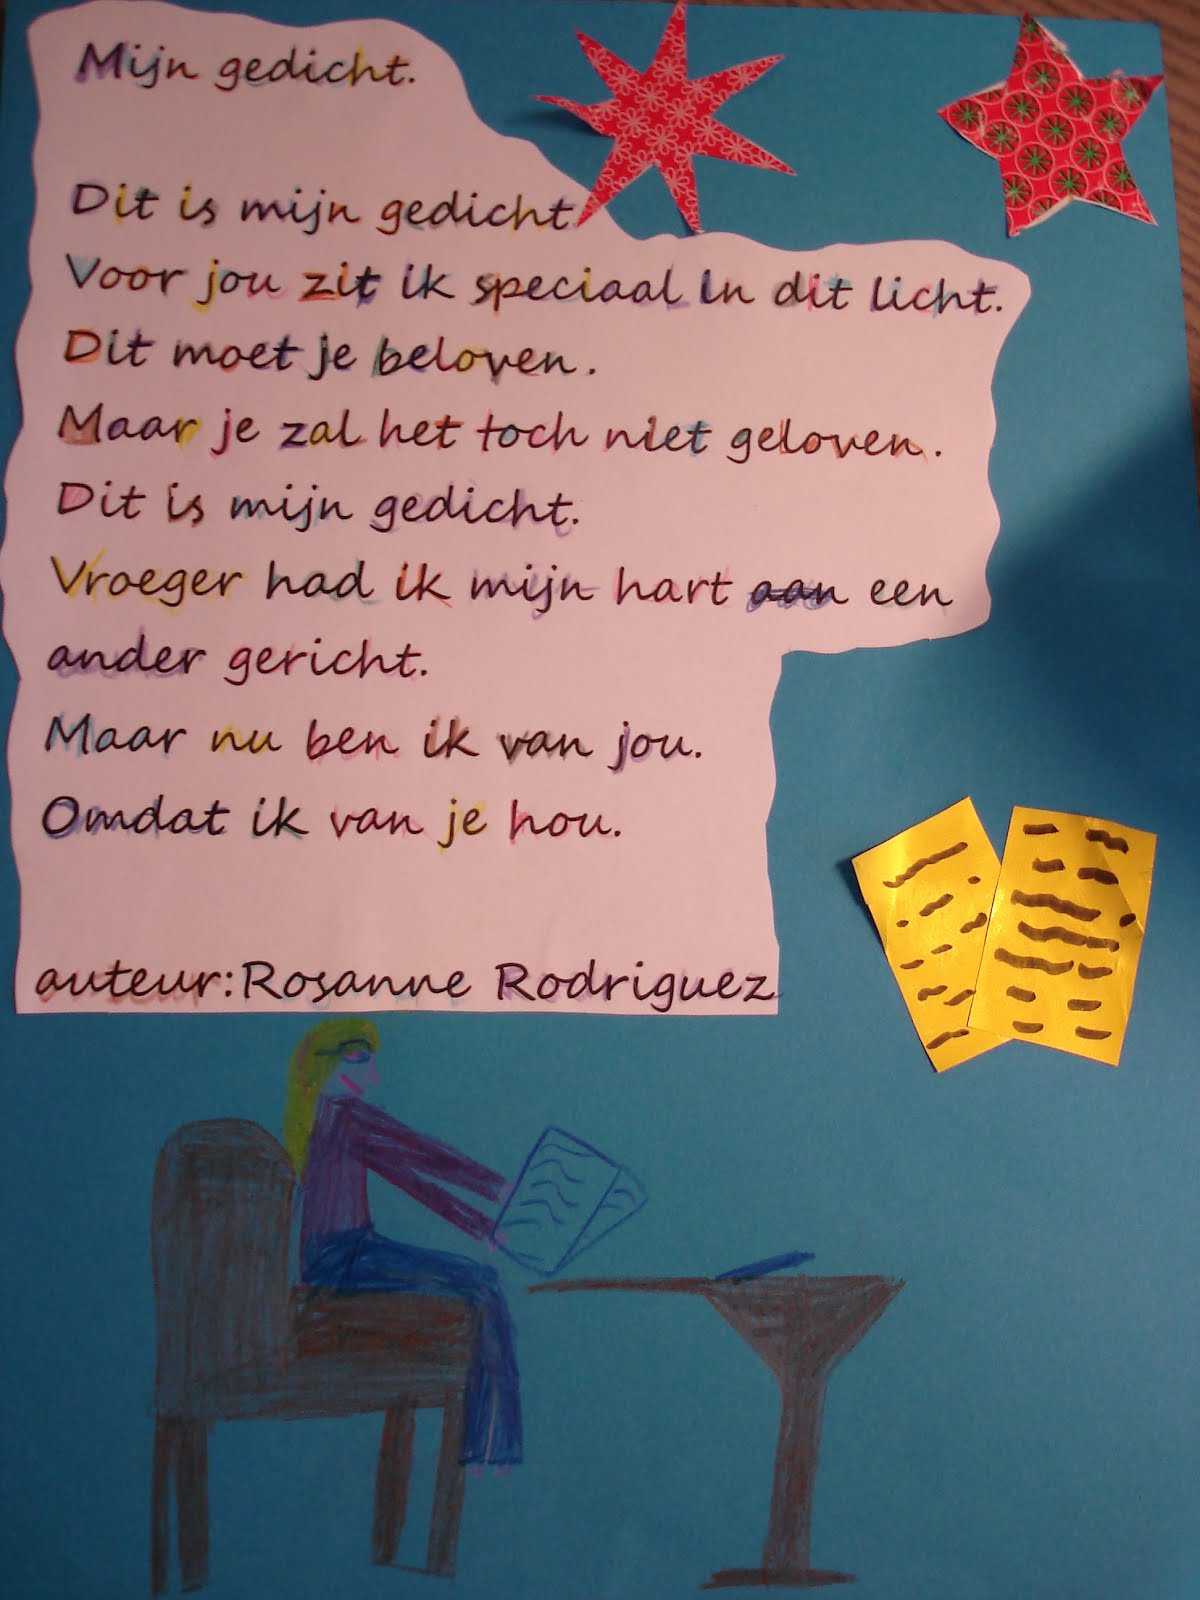 Mijn gedicht.
Dit is mijn gedicht.
Voor jou zit ik speciaal in dit licht.
Dit moet je beloven.
Maar je zal het toch niet geloven.
Dit is mijn gedicht.
Vroeger had ik mijn hart aan een
ander gericht.
Maar nu ben ik van jou.
Omdat ik van je hou.
auteur:Rosanne Rodriguez